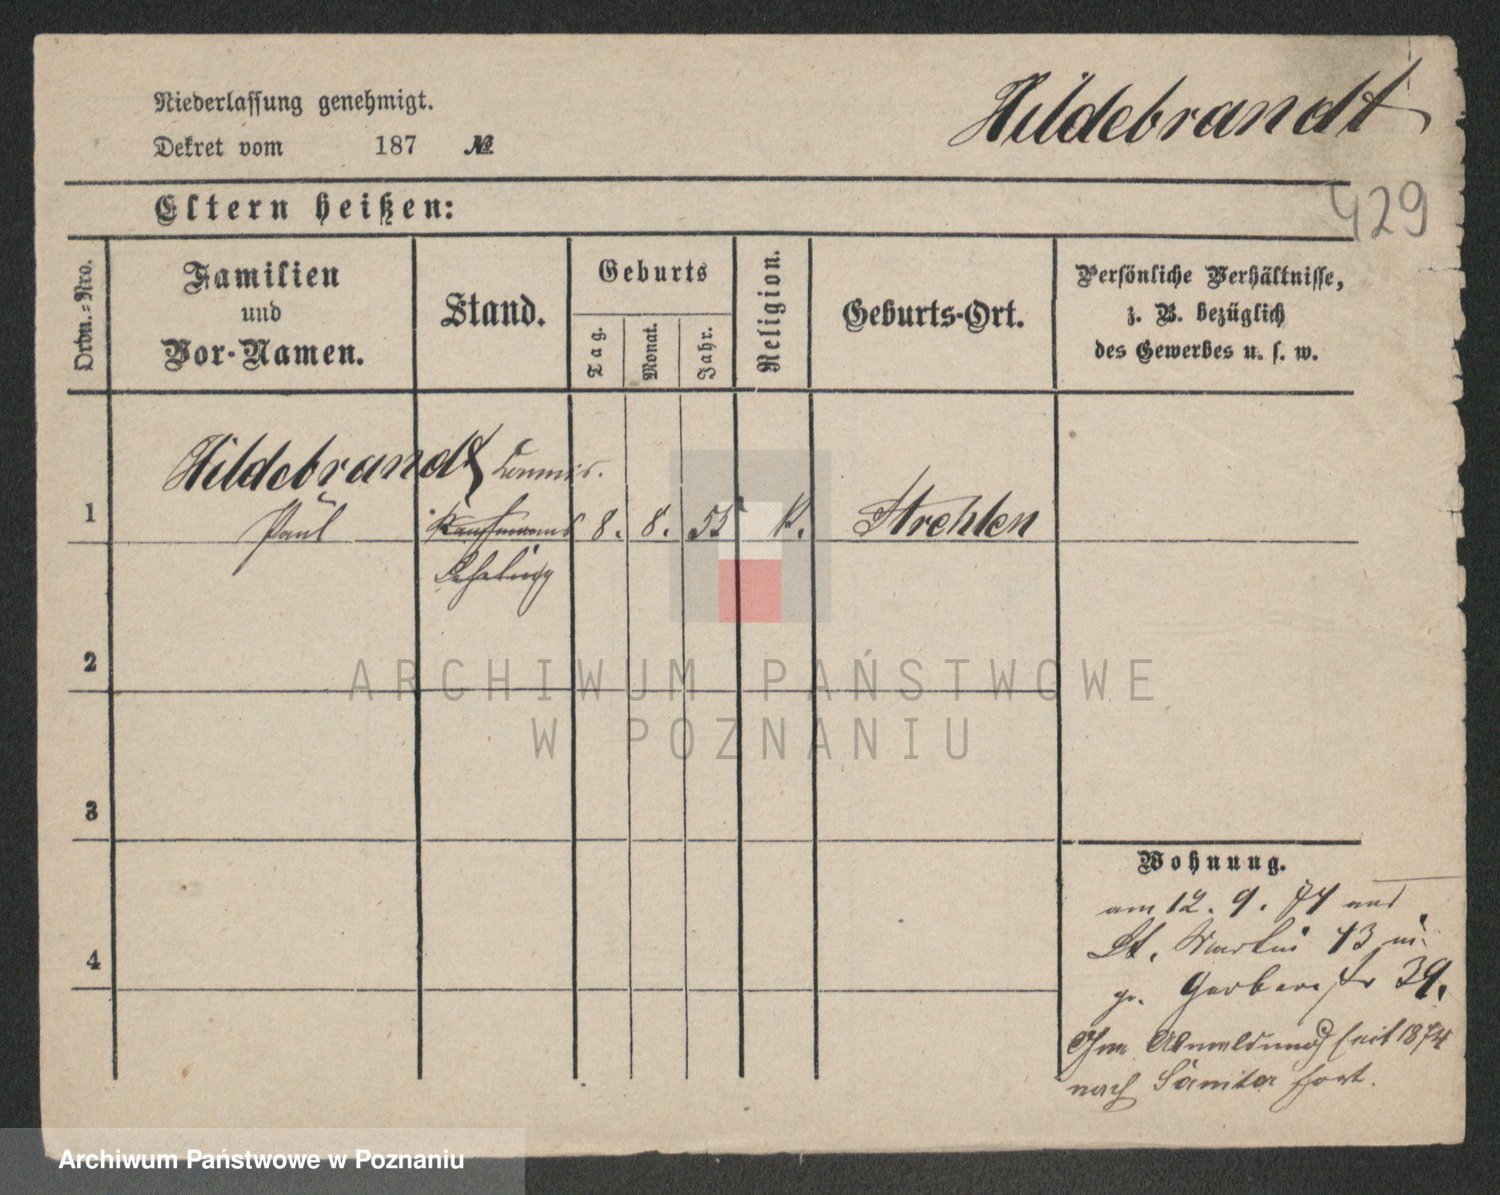 Niederlassung genehmigt.
Hildebrandt
Dekret vom 187 №
Eltern heißen:
429
Ordn.=Nro.
Familien
und
Vor-Namen.
Stand.
Geburts
Tag.
Monat.
Jahr.
Religion.
Geburts-Ort.
Persönliche Verhältnisse,
z. B. bezüglich
des Gewerbes u. s. w.
Hildebrandt Commis.
1 Paul Kaufmanns 8. 8. 55 K. Strehlen
Lehrling
2
ARCHIWUM PAŃSTWOWE
W POZNANIU
3
Wohnung.
am 12. 9. 74 aus
St. Martin 43 in
gr. Gerberstr 39.
4
Ohne Abmeldung seit 1874
nach fort.
Archiwum Państwowe w Poznaniu